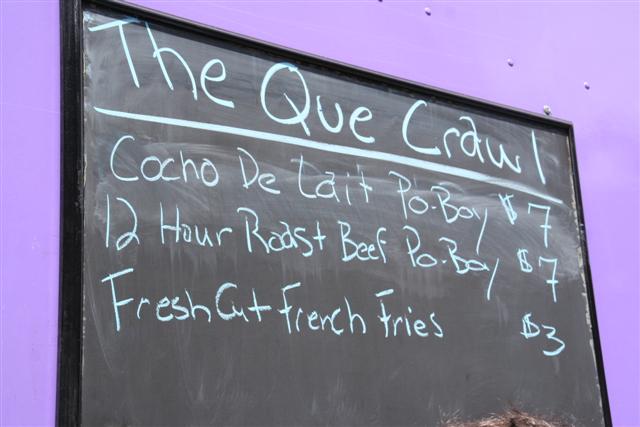 The Que Crawl
Cocho De Lait Po-Boy $7
12 Hour Roast Beef Po-Boy $7
Fresh Cut French Fries $3